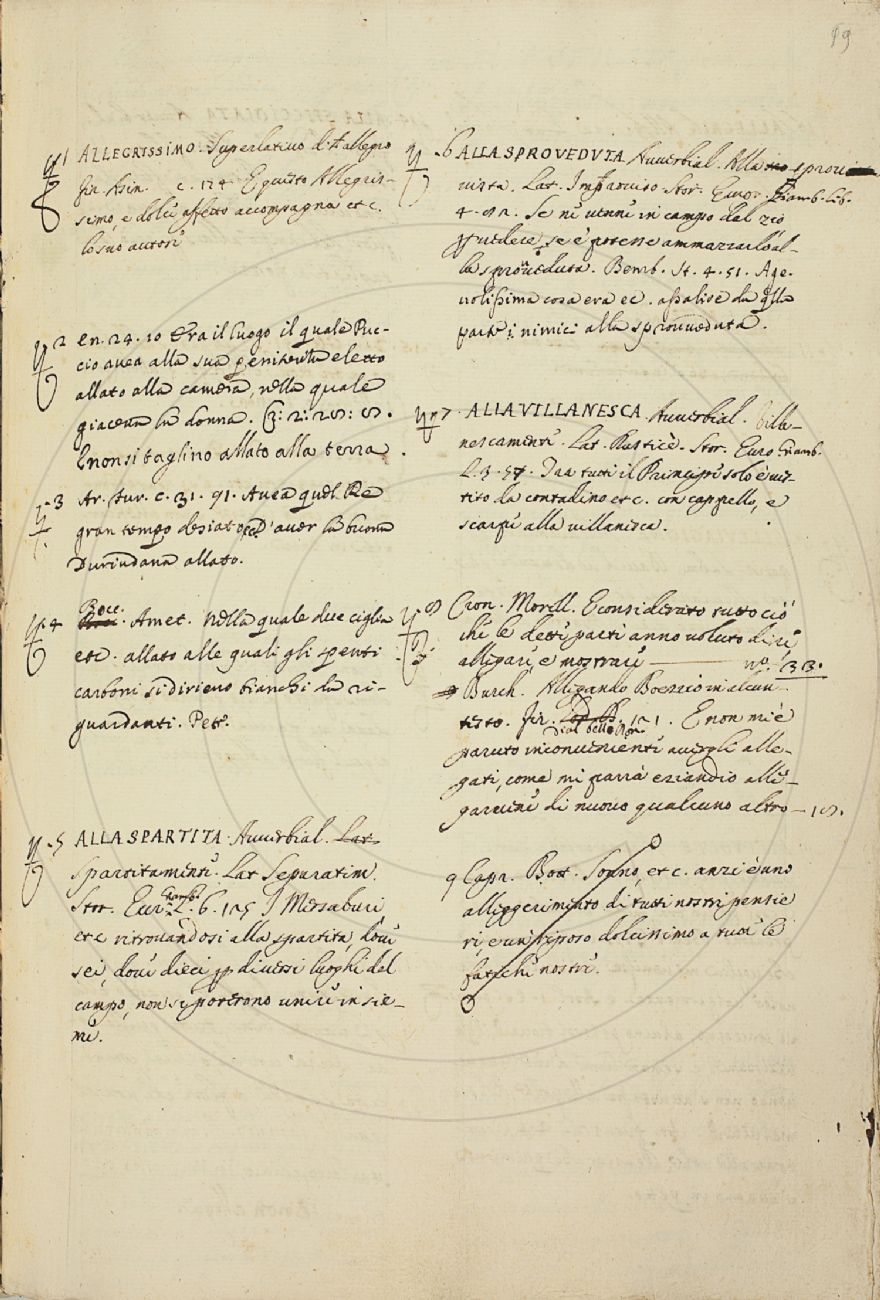 19
1 ALLEGRISSIMO. Superlatiuo d'allegro
Fir. Asin. c. 174. E questo Allegris-
simo, e dolce affetto accompagna etc.
lo suo autore
2 en. 24. 10 Era il luogo il quale Puc-
cio avea alla sua penitenza eletto
allato alla camera, nella quale
giaceva la donna.
E non si taglino allato alla terra.
3 Ar. Fur. c. 31. 91. Avea quel Re
gran tempo desiato d'auer la buona
Durindana allato.
4 Bocc. Amet. nella quale due ciglia
etc. allato alle quali gli spenti
carboni si dirieno bianchi da ri-
guardanti. Pet.
5 ALLASPARTITA. Auuerbial. Lat
Spartitamente. Lat Separatim.
Stor. Eur. Giamb. L. 6. 125 I
etc ritrouandosi alla spartita, doue
sei, doue dieci per diuersi luoghi del
campo, non si poterono unire insie-
me.
6 ALLASPROVEDVTA Auuerbial. Alla
uista. Lat. Improuiso Stor. Europ. Giamb. Lib.
4. 82. Se ne uenne in campo del zio
per uedere se e' potesse ammazzarlo al-
la sproueduta. Bemb. St. 4. 51. Age-
uolissima cosa era ec. assalise da q̃lla
parte i nimici alla sproueduta.
7 ALLAVILLANESCA Auuerbial. Villa-
nescamente. Lat. Rusticè. Stor. Euro Giamb.
L. 3. 57. Tra tutti il Principe solo è ues-
tito da contadino etc. con cappello, e
scarpe alla uillanesca.
8 Cron. Morell. E considerato tutto ciò
che le detti parti anno uoluto dire
allegare, e mostrare no. 33.
Burch. Allegando Boezio in alcun
testo. Fir. Dial. bell. Don. 121. E non mi è
paruto inconueniente auerle alle-
gati, come mi parrà eziandio alle-
garcene di nuouo qualcuno altro - 18.
9 Capr. Bott. Sogno, etc. anzi è uno
alleggerimento di tutti nostri pensie
ri, e un riposo dolcissimo a tutte le
fatiche nostre.